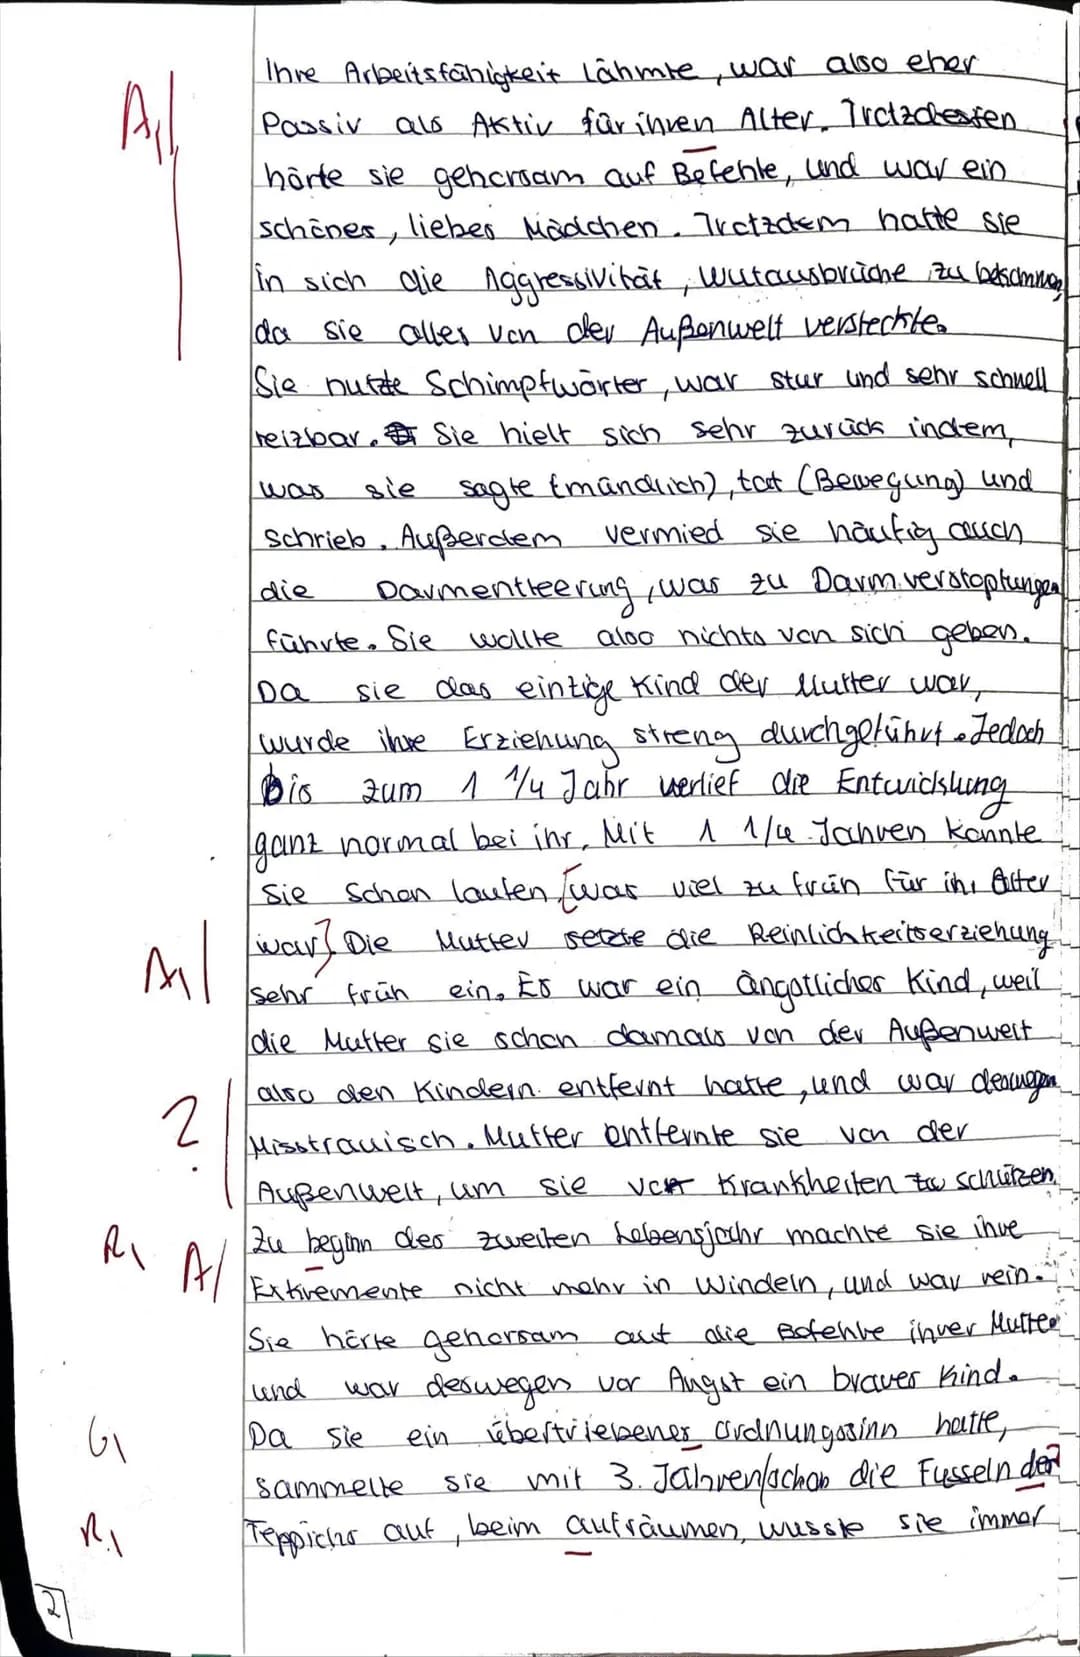 Ihre Arbeitsfähigkeit Lähmte, war also eher
Passiv als Aktiv für ihren Alter. Trotzdessen
hörte sie gehorsam auf Befehle, und war ein
schönes, liebes Mädchen. Trotzdem hatte sie
in sich die Aggressivität, Wutausbrüche zu bekommen,
da sie alles von der Außenwelt versteckte.
Sie nutzte Schimpfwörter, war stur und sehr schnell
reizbar. Sie hielt sich sehr zurück indem,
was sie sagte (mündlich), tat (Bewegung) und
schrieb. Außerdem vermied sie häufig auch
die Darmentleerung, was zu Darmverstopfungen
führte. Sie wollte also nichts von sich geben.
Da sie das eintzige Kind der Mutter war,
wurde ihre Erziehung streng durchgeführt. Jedoch
bis zum 1 1/4 Jahr verlief die Entwicklung
ganz normal bei ihr. Mit 1 1/4 Jahren konnte
A1
Sie schon laufen, [was viel zu früh für ihr Alter
war]. Die Mutter setzte die Reinlichkeitserziehung
A1
sehr früh ein. Es war ein ängstliches Kind, weil
die Mutter sie schon damals von der Außenwelt
also den Kindern entfernt hatte, und war deswegen
?
Misstrauisch. Mutter entfernte sie von der
Außenwelt, um sie vor Krankheiten zu schützen.
R1 A1
Zu beginn des zweiten Lebensjahr machte sie ihre
Exkremente nicht mehr in Windeln, und war rein.
Sie hörte gehorsam auf die Befehle ihrer Mutter
und war deswegen vor Angst ein braves Kind.
G1
Da sie ein übertriebener Ordnungssinn hatte,
sammelte sie mit 3. Jahren/schon die Fusseln der
R1
Teppichs auf, beim aufräumen, wusste sie immer
2